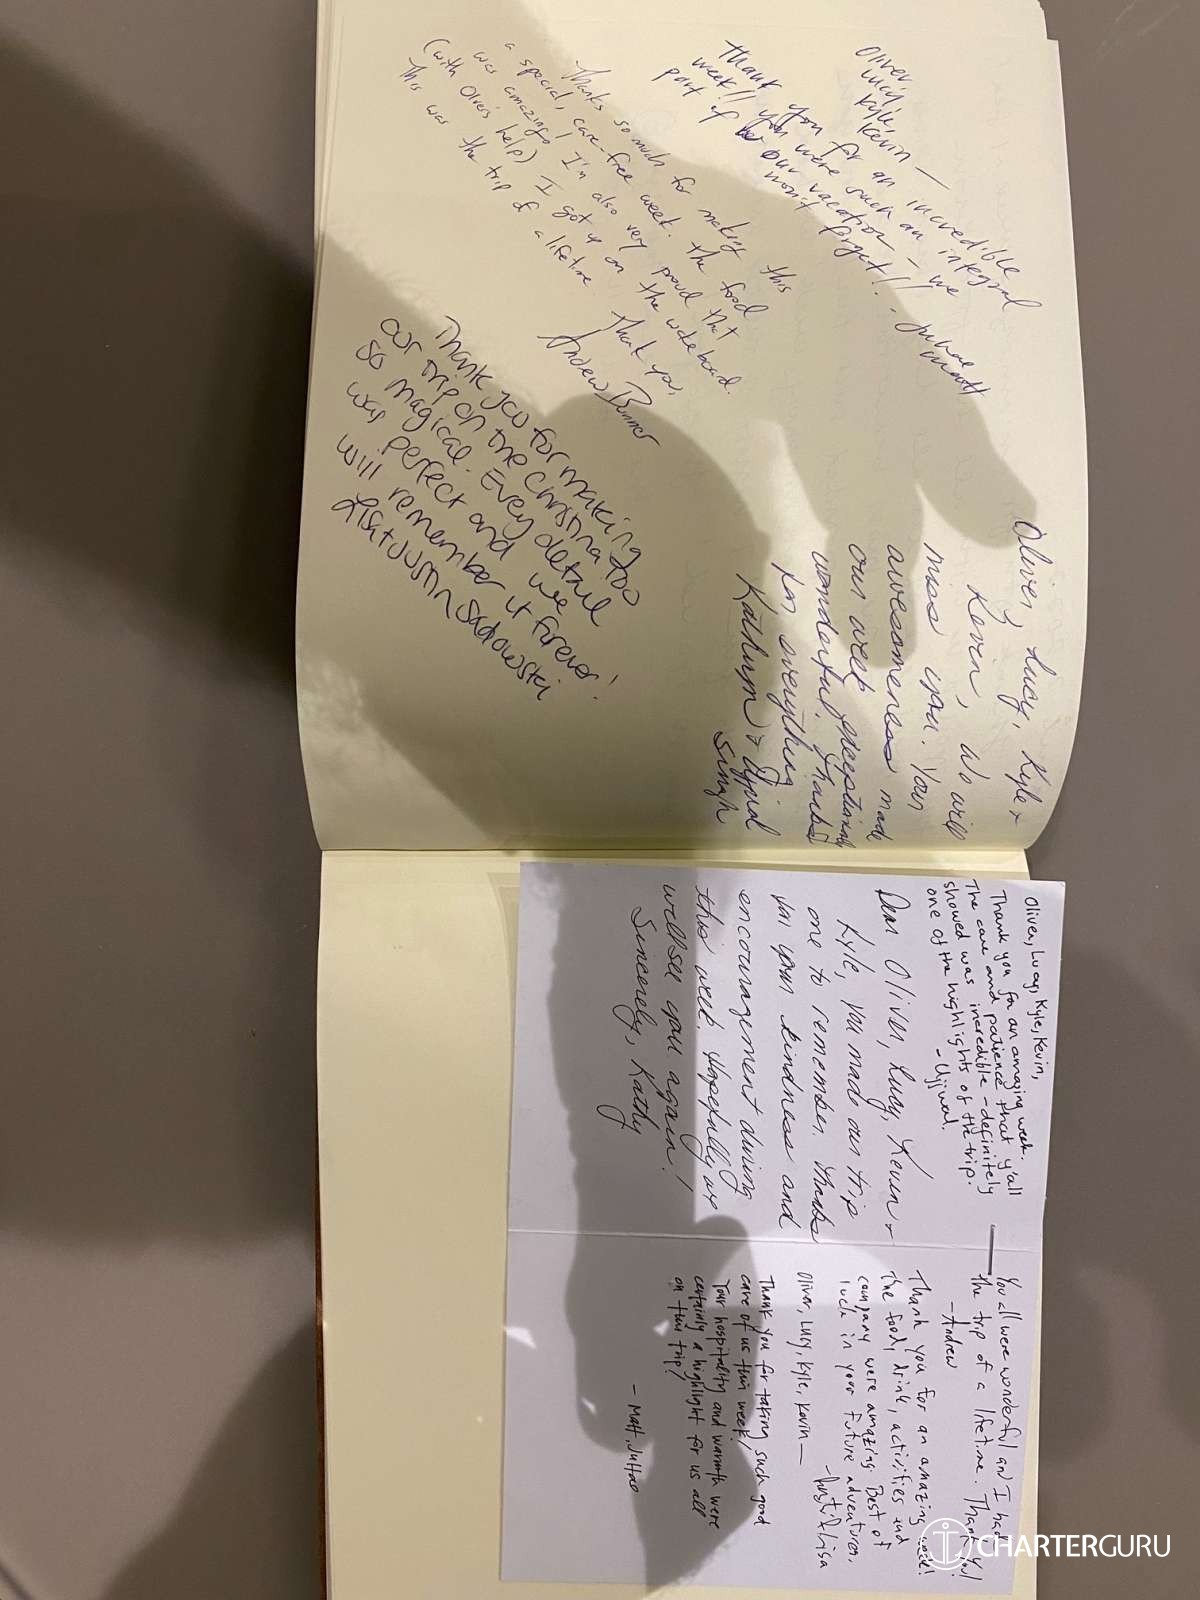 Oliver,
Lucy,
Kyle,
Kevin —
Thank you for an incredible
week!! You were such an integral
part of our vacation — we
won't forget!!
Thanks so much for making this
a special, care-free week. The food
was amazing! I'm also very proud that
(with Oliver's help) I got up on the wakeboard.
This was the trip of a lifetime.
Thank you,
Andrew
Thank you for making
our trip on the Christina Too
so magical. Every detail
was perfect and we
will remember it forever!
Lisa + Justin Sadowski
Oliver, Lucy, Kyle +
Kevin, We will
miss you. Your
awesomeness made
our week exceptionally
wonderful. Thanks
for everything
Kathryn + Ujjwal
Singh
Oliver, Lucy, Kyle, Kevin,
Thank you for an amazing week.
The care and patience that y'all
showed was incredible - definitely
one of the highlights of the trip.
- Ujjwal.
Dear Oliver, Lucy, Kevin +
Kyle, you made our trip
one to remember. Thanks
for your kindness and
encouragement during
this week. Hopefully we
will see you again!
Sincerely, Kathy
You all were wonderful and I had
the trip of a lifetime. Thank you!
- Andrew
Thank you for an amazing week!
The food, drink, activities and
company were amazing. Best of
luck in your future adventures.
Oliver, Lucy, Kyle, Kevin —
Thank you for taking such good
care of us this week!
Your hospitality and warmth were
certainly a highlight for us all
on this trip!
- Matt,
CHARTERGURU